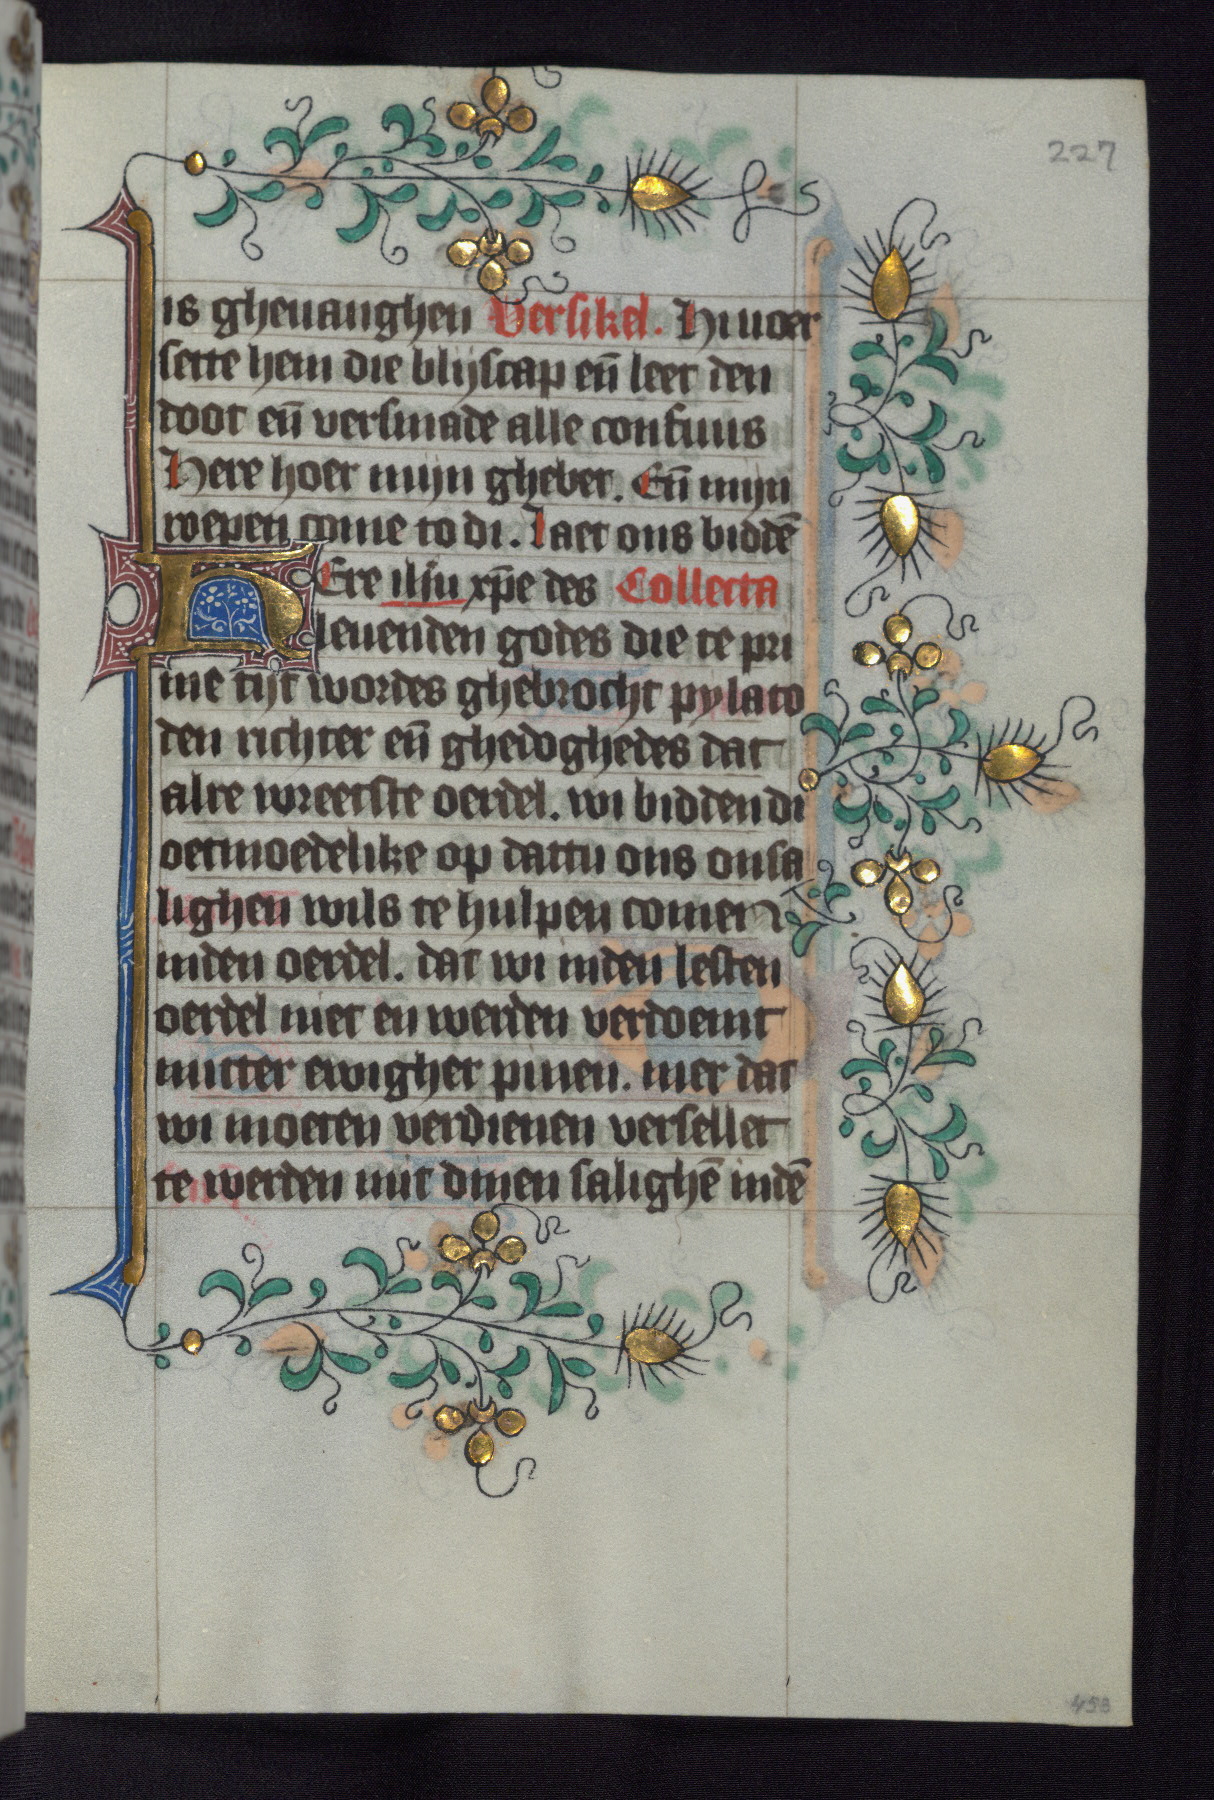 227
is gheuanghen Versikel. Hi uoer
sette hem die blijscap eñ leet den
doot eñ versmade alle confuus
Here hoer mijn ghebet. Eñ mijn
wepen come to di. Laet ons biddē
HEre ihu xp̄e des Collecta
leuenden godes die te pri
me tijt wordes ghebrocht pylato
den richter eñ ghedoghedes dat
alre wreetste oerdel. wi bidden di
oetmoedelike op dattu ons onsa
lighen wils te hulpen comen
inden oerdel. dat wi inden lesten
oerdel niet en werden verdoemt
mitter ewigher pinen. mer dat
wi moeten verdienen versellet
te werden mit dinen salighē indē
453